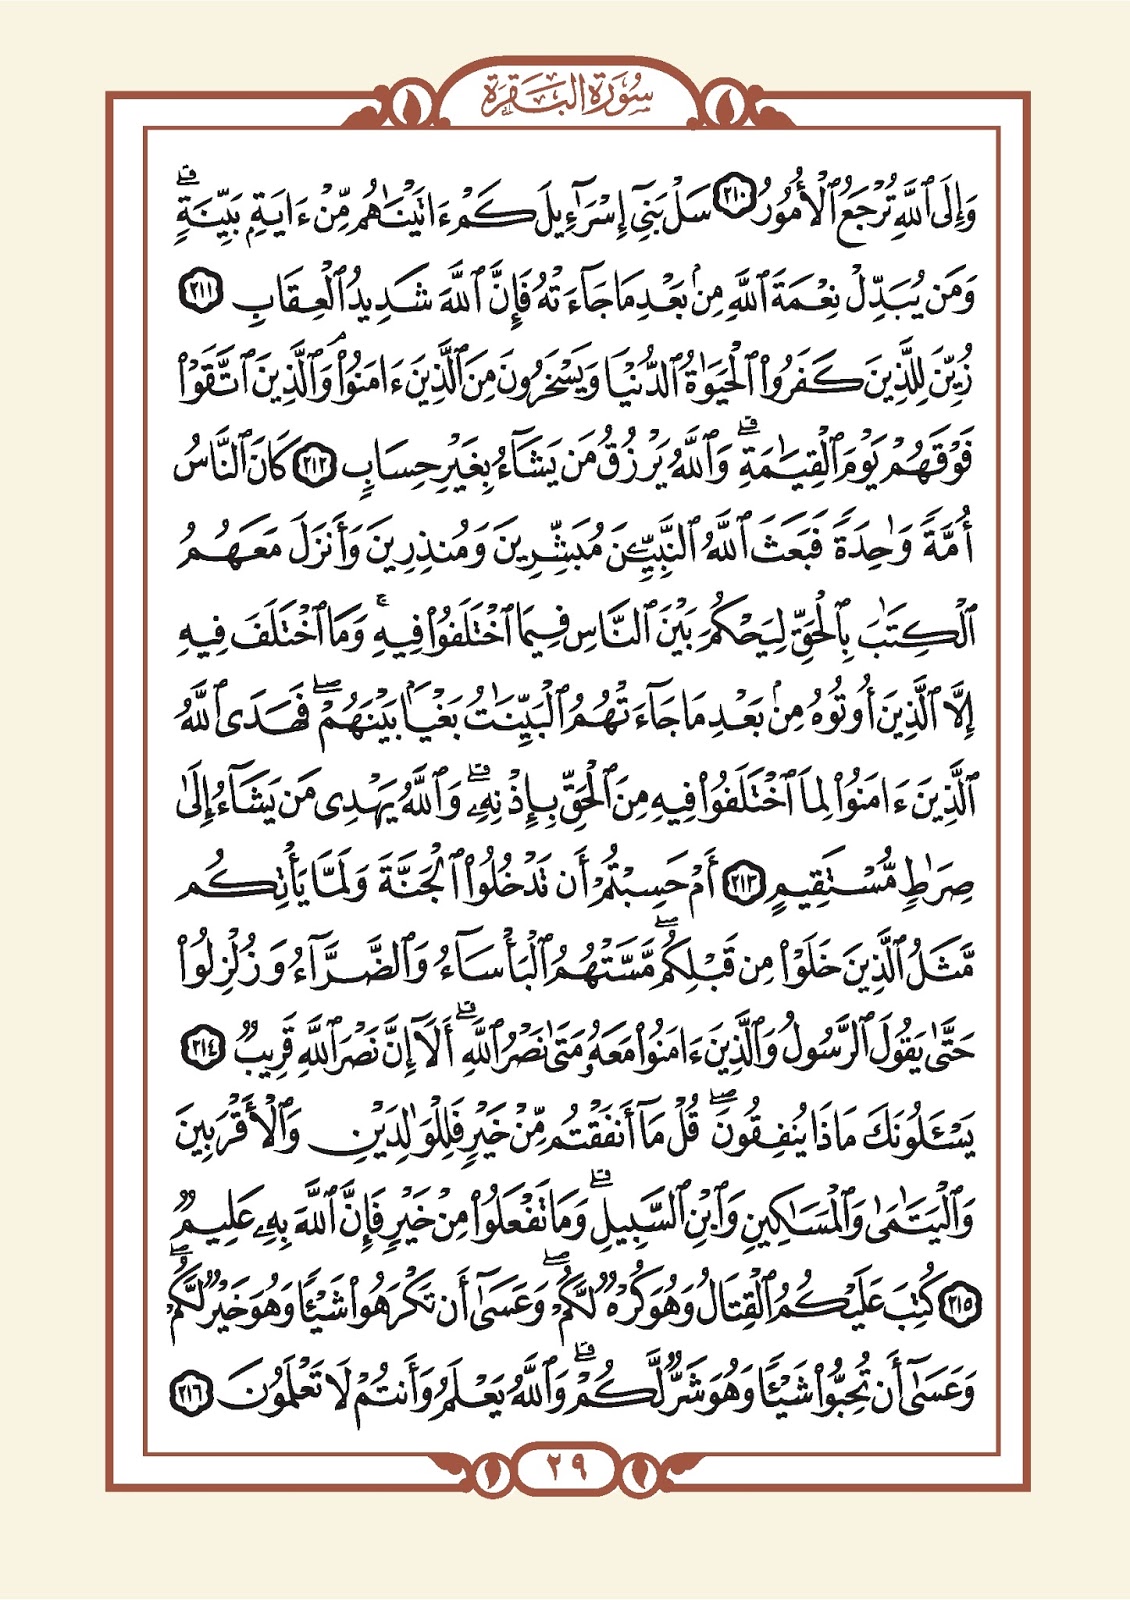 سُورَةُ البَقَرَةِ
وَإِلَى ٱللَّهِ تُرْجَعُ ٱلْأُمُورُ ٢١٠ سَلْ بَنِىٓ إِسْرَٰٓءِيلَ كَمْ ءَاتَيْنَٰهُم مِّنْ ءَايَةٍۭ بَيِّنَةٍۗ
وَمَن يُبَدِّلْ نِعْمَةَ ٱللَّهِ مِنۢ بَعْدِ مَا جَآءَتْهُ فَإِنَّ ٱللَّهَ شَدِيدُ ٱلْعِقَابِ ٢١١
زُيِّنَ لِلَّذِينَ كَفَرُوا۟ ٱلْحَيَوٰةُ ٱلدُّنْيَا وَيَسْخَرُونَ مِنَ ٱلَّذِينَ ءَامَنُوا۟ۘ وَٱلَّذِينَ ٱتَّقَوْا۟
فَوْقَهُمْ يَوْمَ ٱلْقِيَٰمَةِۗ وَٱللَّهُ يَرْزُقُ مَن يَشَآءُ بِغَيْرِ حِسَابٍ ٢١٢ كَانَ ٱلنَّاسُ
أُمَّةً وَٰحِدَةً فَبَعَثَ ٱللَّهُ ٱلنَّبِيِّۦنَ مُبَشِّرِينَ وَمُنذِرِينَ وَأَنزَلَ مَعَهُمُ
ٱلْكِتَٰبَ بِٱلْحَقِّ لِيَحْكُمَ بَيْنَ ٱلنَّاسِ فِيمَا ٱخْتَلَفُوا۟ فِيهِۚ وَمَا ٱخْتَلَفَ فِيهِ
إِلَّا ٱلَّذِينَ أُوتُوهُ مِنۢ بَعْدِ مَا جَآءَتْهُمُ ٱلْبَيِّنَٰتُ بَغْيًۢا بَيْنَهُمْۖ فَهَدَى ٱللَّهُ
ٱلَّذِينَ ءَامَنُوا۟ لِمَا ٱخْتَلَفُوا۟ فِيهِ مِنَ ٱلْحَقِّ بِإِذْنِهِۦۗ وَٱللَّهُ يَهْدِى مَن يَشَآءُ إِلَىٰ
صِرَٰطٍ مُّسْتَقِيمٍ ٢١٣ أَمْ حَسِبْتُمْ أَن تَدْخُلُوا۟ ٱلْجَنَّةَ وَلَمَّا يَأْتِكُم
مَّثَلُ ٱلَّذِينَ خَلَوْا۟ مِن قَبْلِكُمۖ مَّسَّتْهُمُ ٱلْبَأْسَآءُ وَٱلضَّرَّآءُ وَزُلْزِلُوا۟
حَتَّىٰ يَقُولَ ٱلرَّسُولُ وَٱلَّذِينَ ءَامَنُوا۟ مَعَهُۥ مَتَىٰ نَصْرُ ٱللَّهِۗ أَلَآ إِنَّ نَصْرَ ٱللَّهِ قَرِيبٌ ٢١٤
يَسْـَٔلُونَكَ مَاذَا يُنفِقُونَۖ قُلْ مَآ أَنفَقْتُم مِّنْ خَيْرٍ فَلِلْوَٰلِدَيْنِ وَٱلْأَقْرَبِينَ
وَٱلْيَتَٰمَىٰ وَٱلْمَسَٰكِينِ وَٱبْنِ ٱلسَّبِيلِۗ وَمَا تَفْعَلُوا۟ مِنْ خَيْرٍ فَإِنَّ ٱللَّهَ بِهِۦ عَلِيمٌ
٢١٥ كُتِبَ عَلَيْكُمُ ٱلْقِتَالُ وَهُوَ كُرْهٌ لَّكُمْۖ وَعَسَىٰٓ أَن تَكْرَهُوا۟ شَيْـًٔا وَهُوَ خَيْرٌ لَّكُمْۖ
وَعَسَىٰٓ أَن تُحِبُّوا۟ شَيْـًٔا وَهُوَ شَرٌّ لَّكُمْۗ وَٱللَّهُ يَعْلَمُ وَأَنتُمْ لَا تَعْلَمُونَ ٢١٦
٢٩